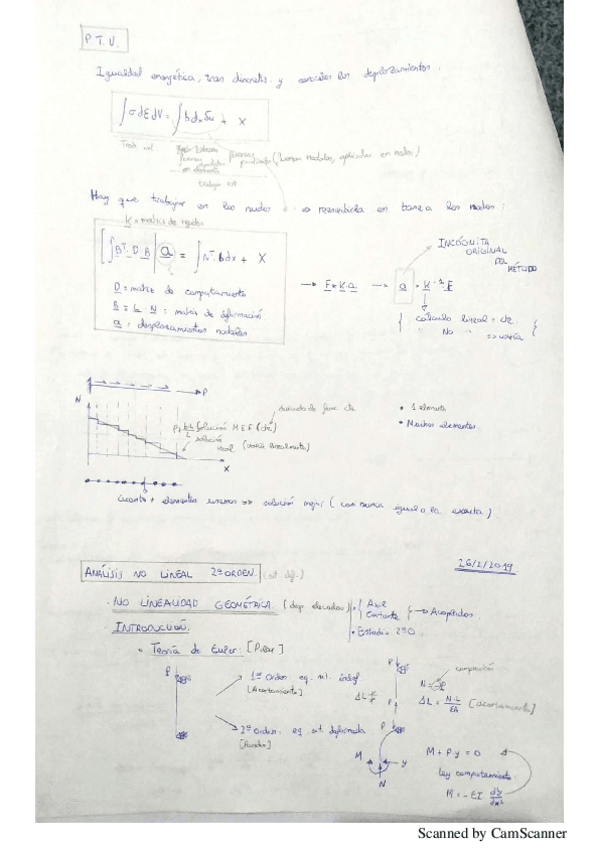 P.T.V.
Igualdad energética, tras discretiz. y conocidos los desplazamientos.
∫σdεdV = ∫b dx δu + X
Trab. int.
puntuales (fuerzas nodales, aplicadas en nodos)
trabajo ext
Hay que trabajar en los nudos ⇒ reescribirla en base a los nodos:
K = matriz de rigidez
[∫BT.D.B] a = ∫NT.b dx + X
D = matriz de comportamiento
B = L N = matriz de deformación
a = desplazamientos nodales
→ F = K.a → a = K-1.F
INCÓGNITA ORIGINAL DEL MÉTODO
cálculo lineal = cte.
" No " => varía
P
N
derivada de func. cte
solución M.E.F. (cte)
solución real (varía linealmente)
x
• 1 elemento
• Muchos elementos
Cuanto + elementos usemos => solución mejor (casi nunca igual a la exacta)
26/2/2019
ANÁLISIS NO LINEAL 2º ORDEN. (sit. def.)
· NO LINEALIDAD GEOMÉTRICA. (desp. elevados)
• Axil
Cortante → Acoplados.
• Estudio 2ºO.
· INTRODUCCIÓN.
• Teoría de Euler: [Pilar]
P
1er Orden eq. sit. inicial
[Acortamiento]
2º Orden. eq. sit. deformada
[Pandeo]
P
ΔL
P
compresión
N = -P
ΔL = N·L/EA [acortamiento]
P
M
y
N
M + P.y = 0
ley comportamiento
M = -EI d²y/dx²
Scanned by CamScanner